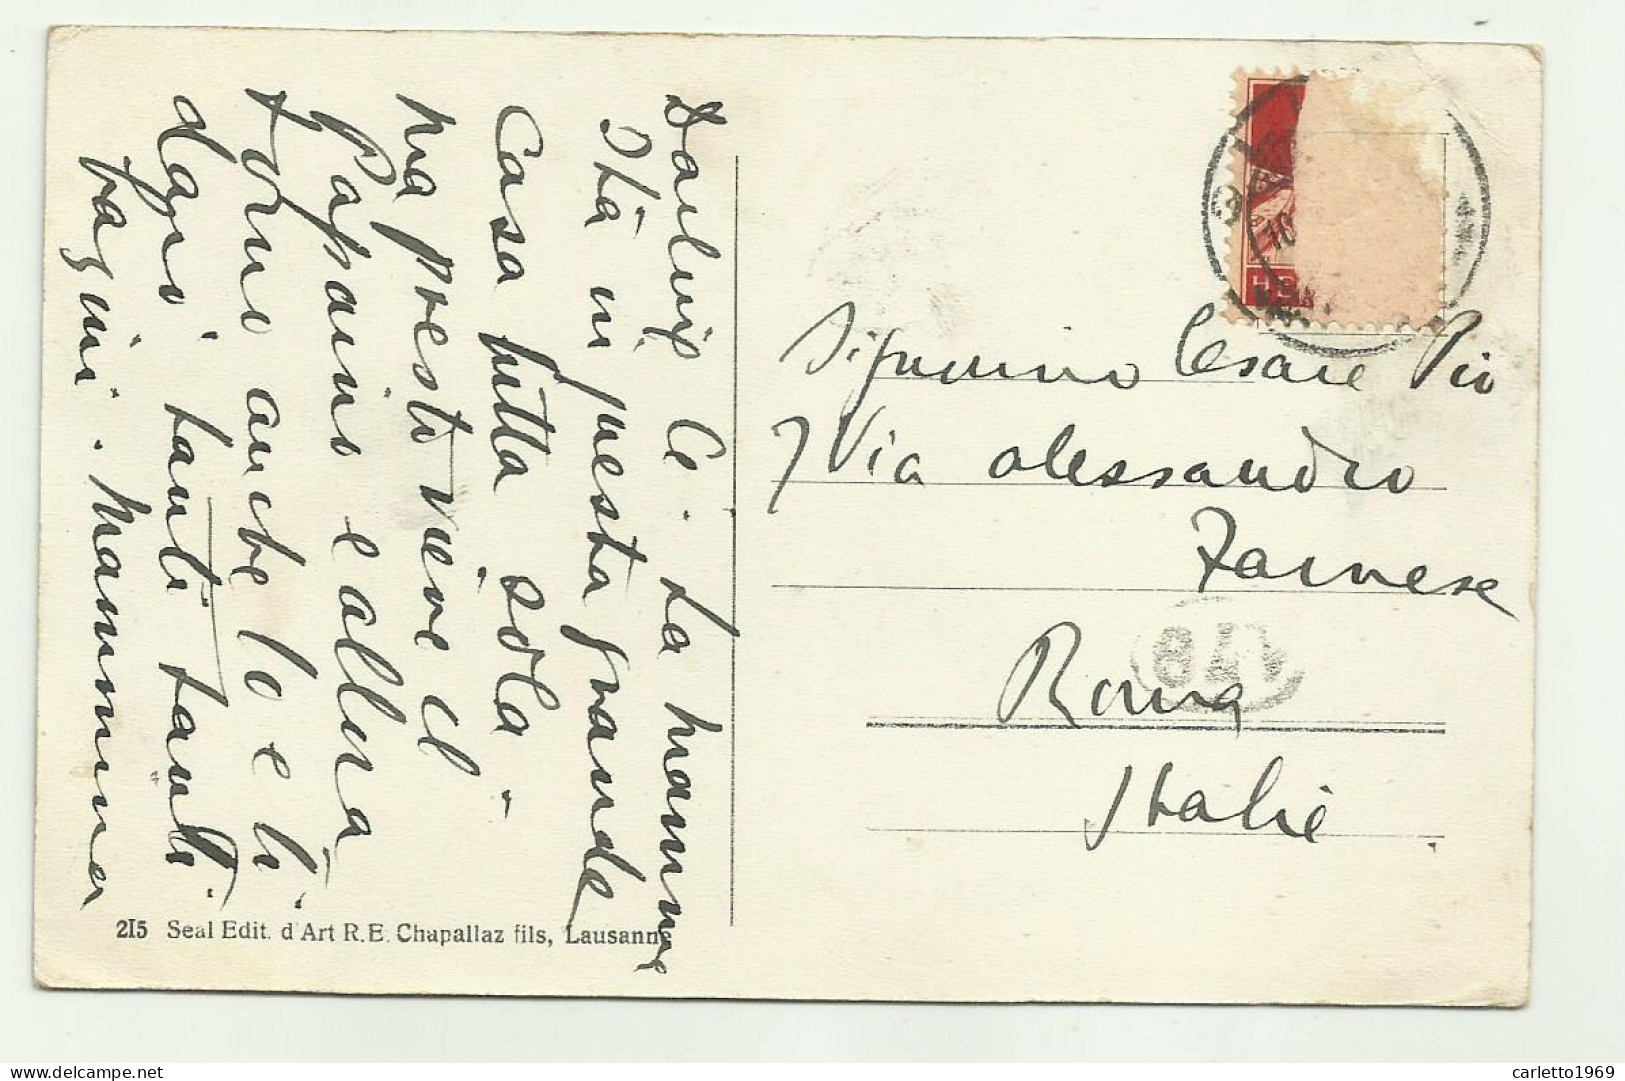 Ce. La mamma
Stà in questa grande
Casa tutta sola.
ma presto viene el
Papaino e allora
torno anche lo e ti
dagio tanti tanti
bagini. Mammina
215 Seal Edit. d'Art R. E. Chapallaz fils, Lausanne
Signorino Cesare Pio
7 Via Alessandro
Farnese
Roma
Italie
carletto1969